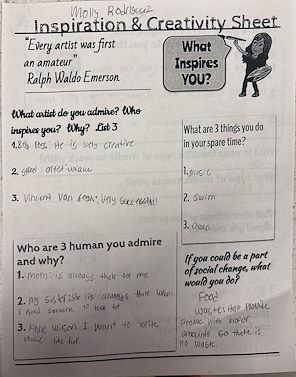 Molly Rodriguez
Inspiration & Creativity Sheet
"Every artist was first
an amateur"
Ralph Waldo Emerson
What
Inspires
YOU?
What artist do you admire? Who
inspires you? Why? List 3
1. Bob Ross: He is very creative
2. street artist: unique
3. Vincent Van Gogh: Very successful
What are 3 things you do
in your spare time?
1. music
2. swim
3.
Who are 3 human you admire
and why?
1. mom: is always there for me
2. my sister: she is always there when
I need someone to talk to
3. Anne Wilson: I want to write
music like her
If you could be a part
of social change, what
would you do?
Food
waste: Help provide
people with
amounts so there is
no waste.